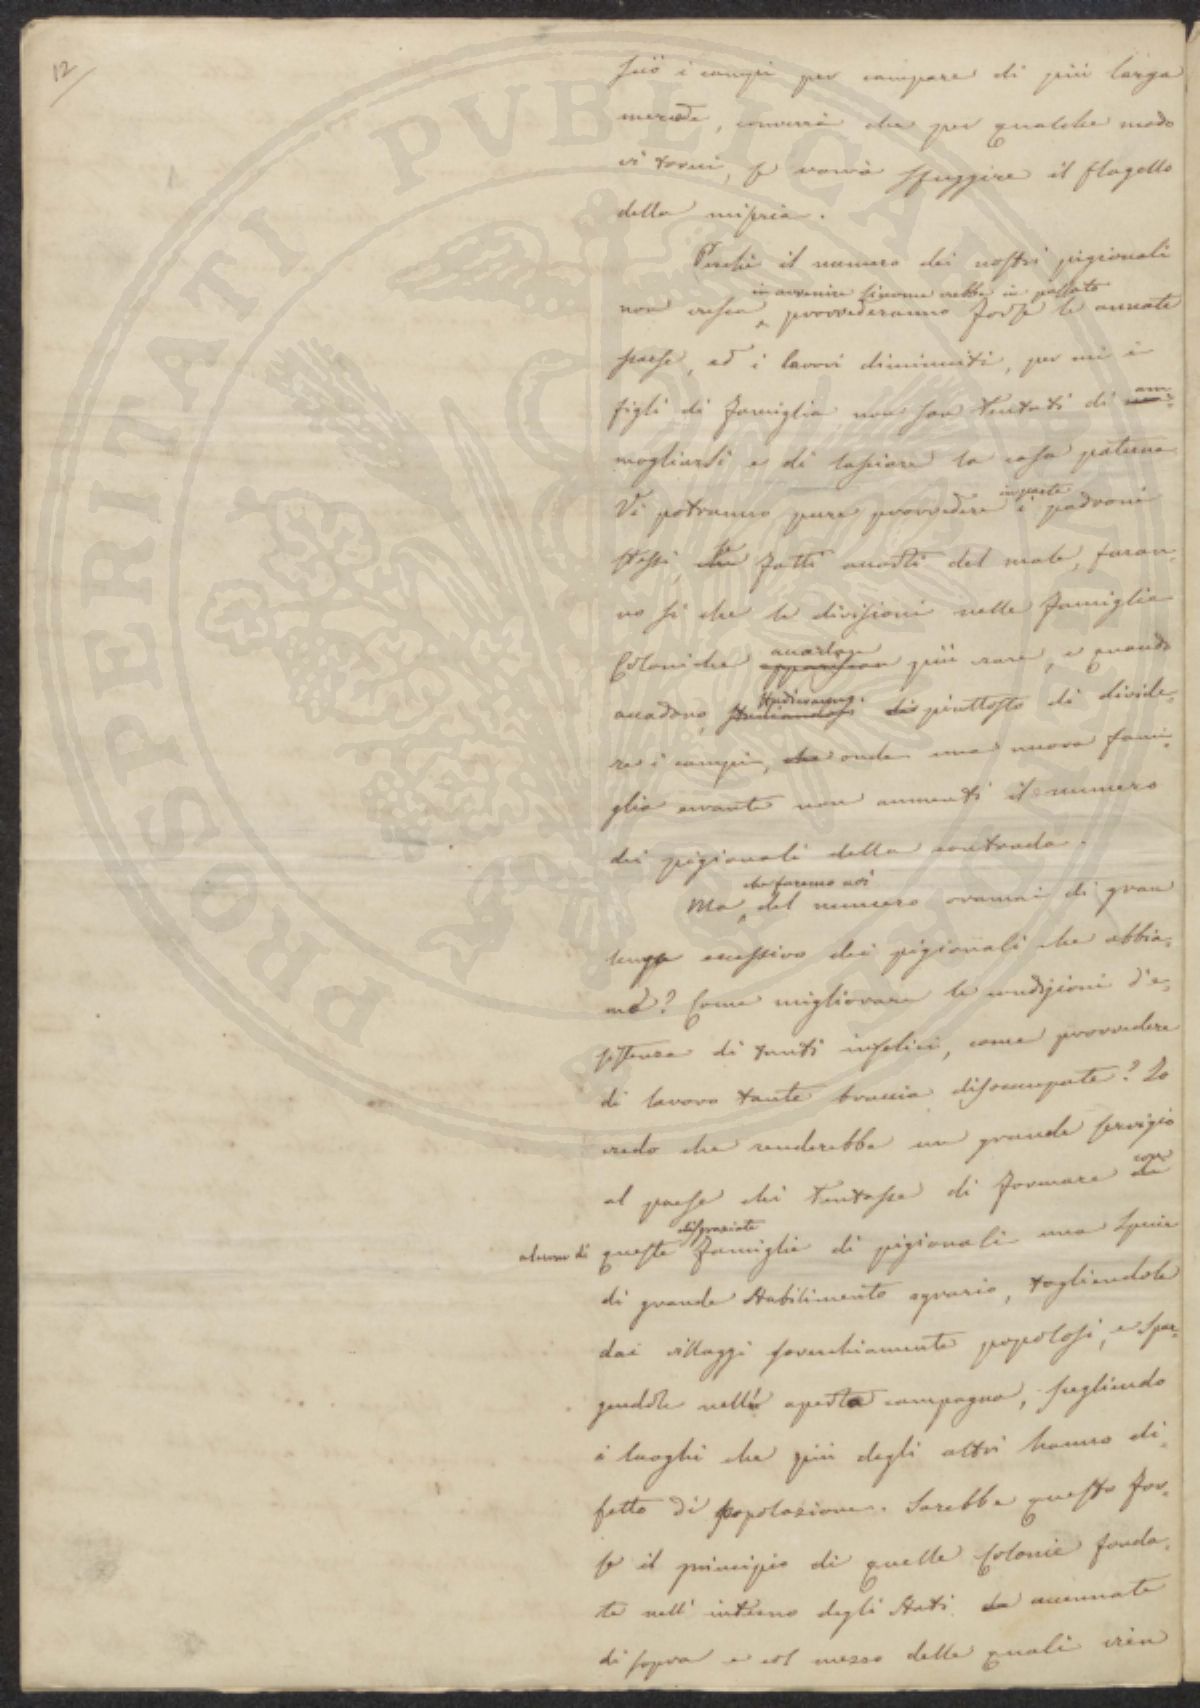 12
sciò i campi per campare di più larga
mercede, converrà che per qualche modo
vi torni, se vorrà sfuggire il flagello
della miseria.
Perché il numero dei nostri pigionali
in avvenire siccome crebbe in passato
non cresca, provvederanno forse le annate
scarse, ed i lavori diminuiti, per cui i
figli di famiglia non son tentati di am-
mogliarsi e di lasciare la casa paterna
Vi potranno pure provvedere in parte i padroni
stessi, che se fatti accorti del male, faran-
no sì che le divisioni nelle famiglie
Coloniche accadano più rare, e quando
accadono, studieranno di piuttosto di divide-
re i campi, che onde una nuova fami-
glia errante non aumenti il numero
dei pigionali della contrada.
che faremo noi
Ma del numero oramai di gran
lunga eccessivo dei pigionali che abbia-
mo? Come migliorare le condizioni d'e-
sistenza di tanti infelici, come provvedere
di lavoro tante braccia disoccupate? Io
credo che renderebbe un grande servigio
al paese chi tentasse di formare con
alcune di queste disgraziate famiglie di pigionali una specie
di grande stabilimento agrario, togliendole
dai villaggi soverchiamente popolosi, e spar-
gendole nell' aperta campagna, scegliendo
i luoghi che più degli altri hanno di-
fetto di popolazione. Sarebbe questo for-
se il principio di quelle Colonie fonda-
te nell' interno degli Stati accennate
di sopra e col mezzo delle quali vien
PROSPERITATI PVBLICAE